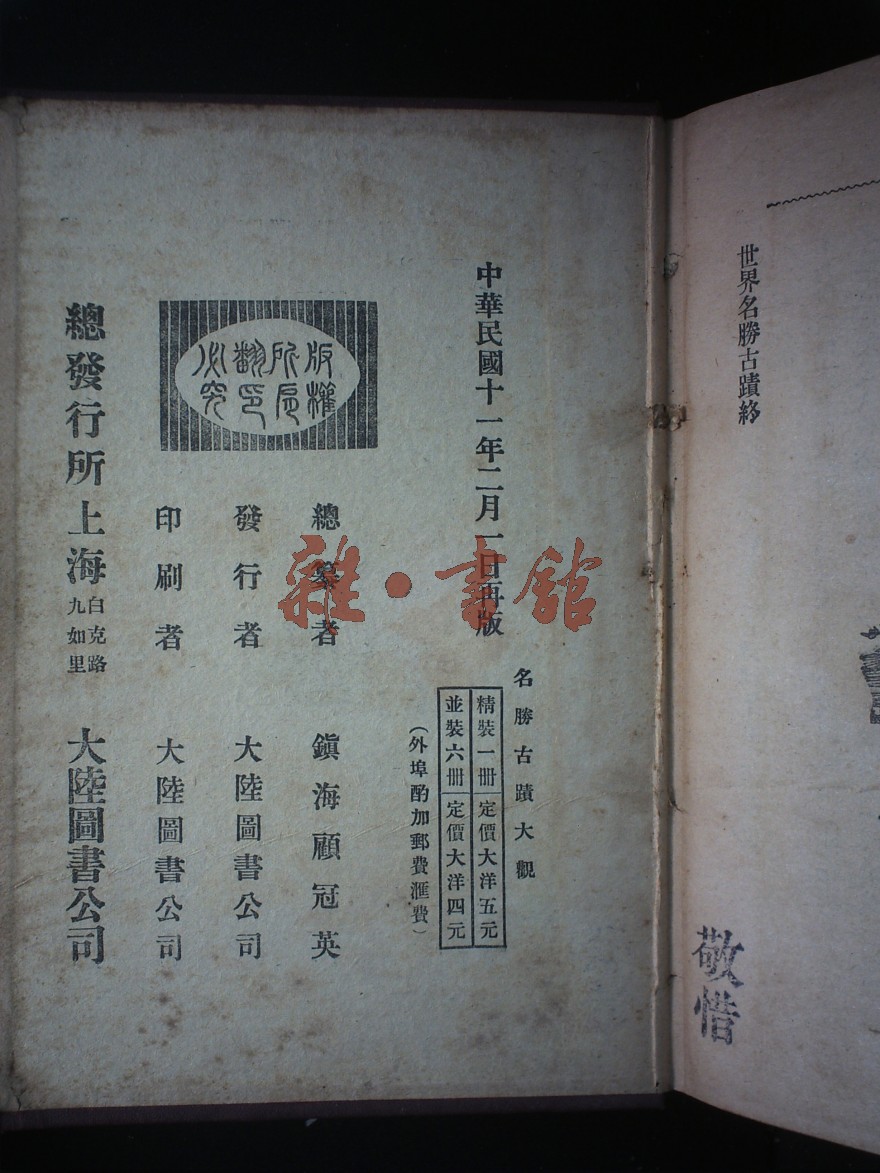 世界名勝古蹟終
敬惜
中華民國十一年二月一日再版
名勝古蹟大觀
精裝一冊 定價大洋五元
並裝六冊 定價大洋四元
(外埠酌加郵費滙費)
版權
所有
翻印
必究
總纂者 鎭海顧冠英
發行者 大陸圖書公司
印刷者 大陸圖書公司
總發行所上海白克路九如里 大陸圖書公司
雜·書館